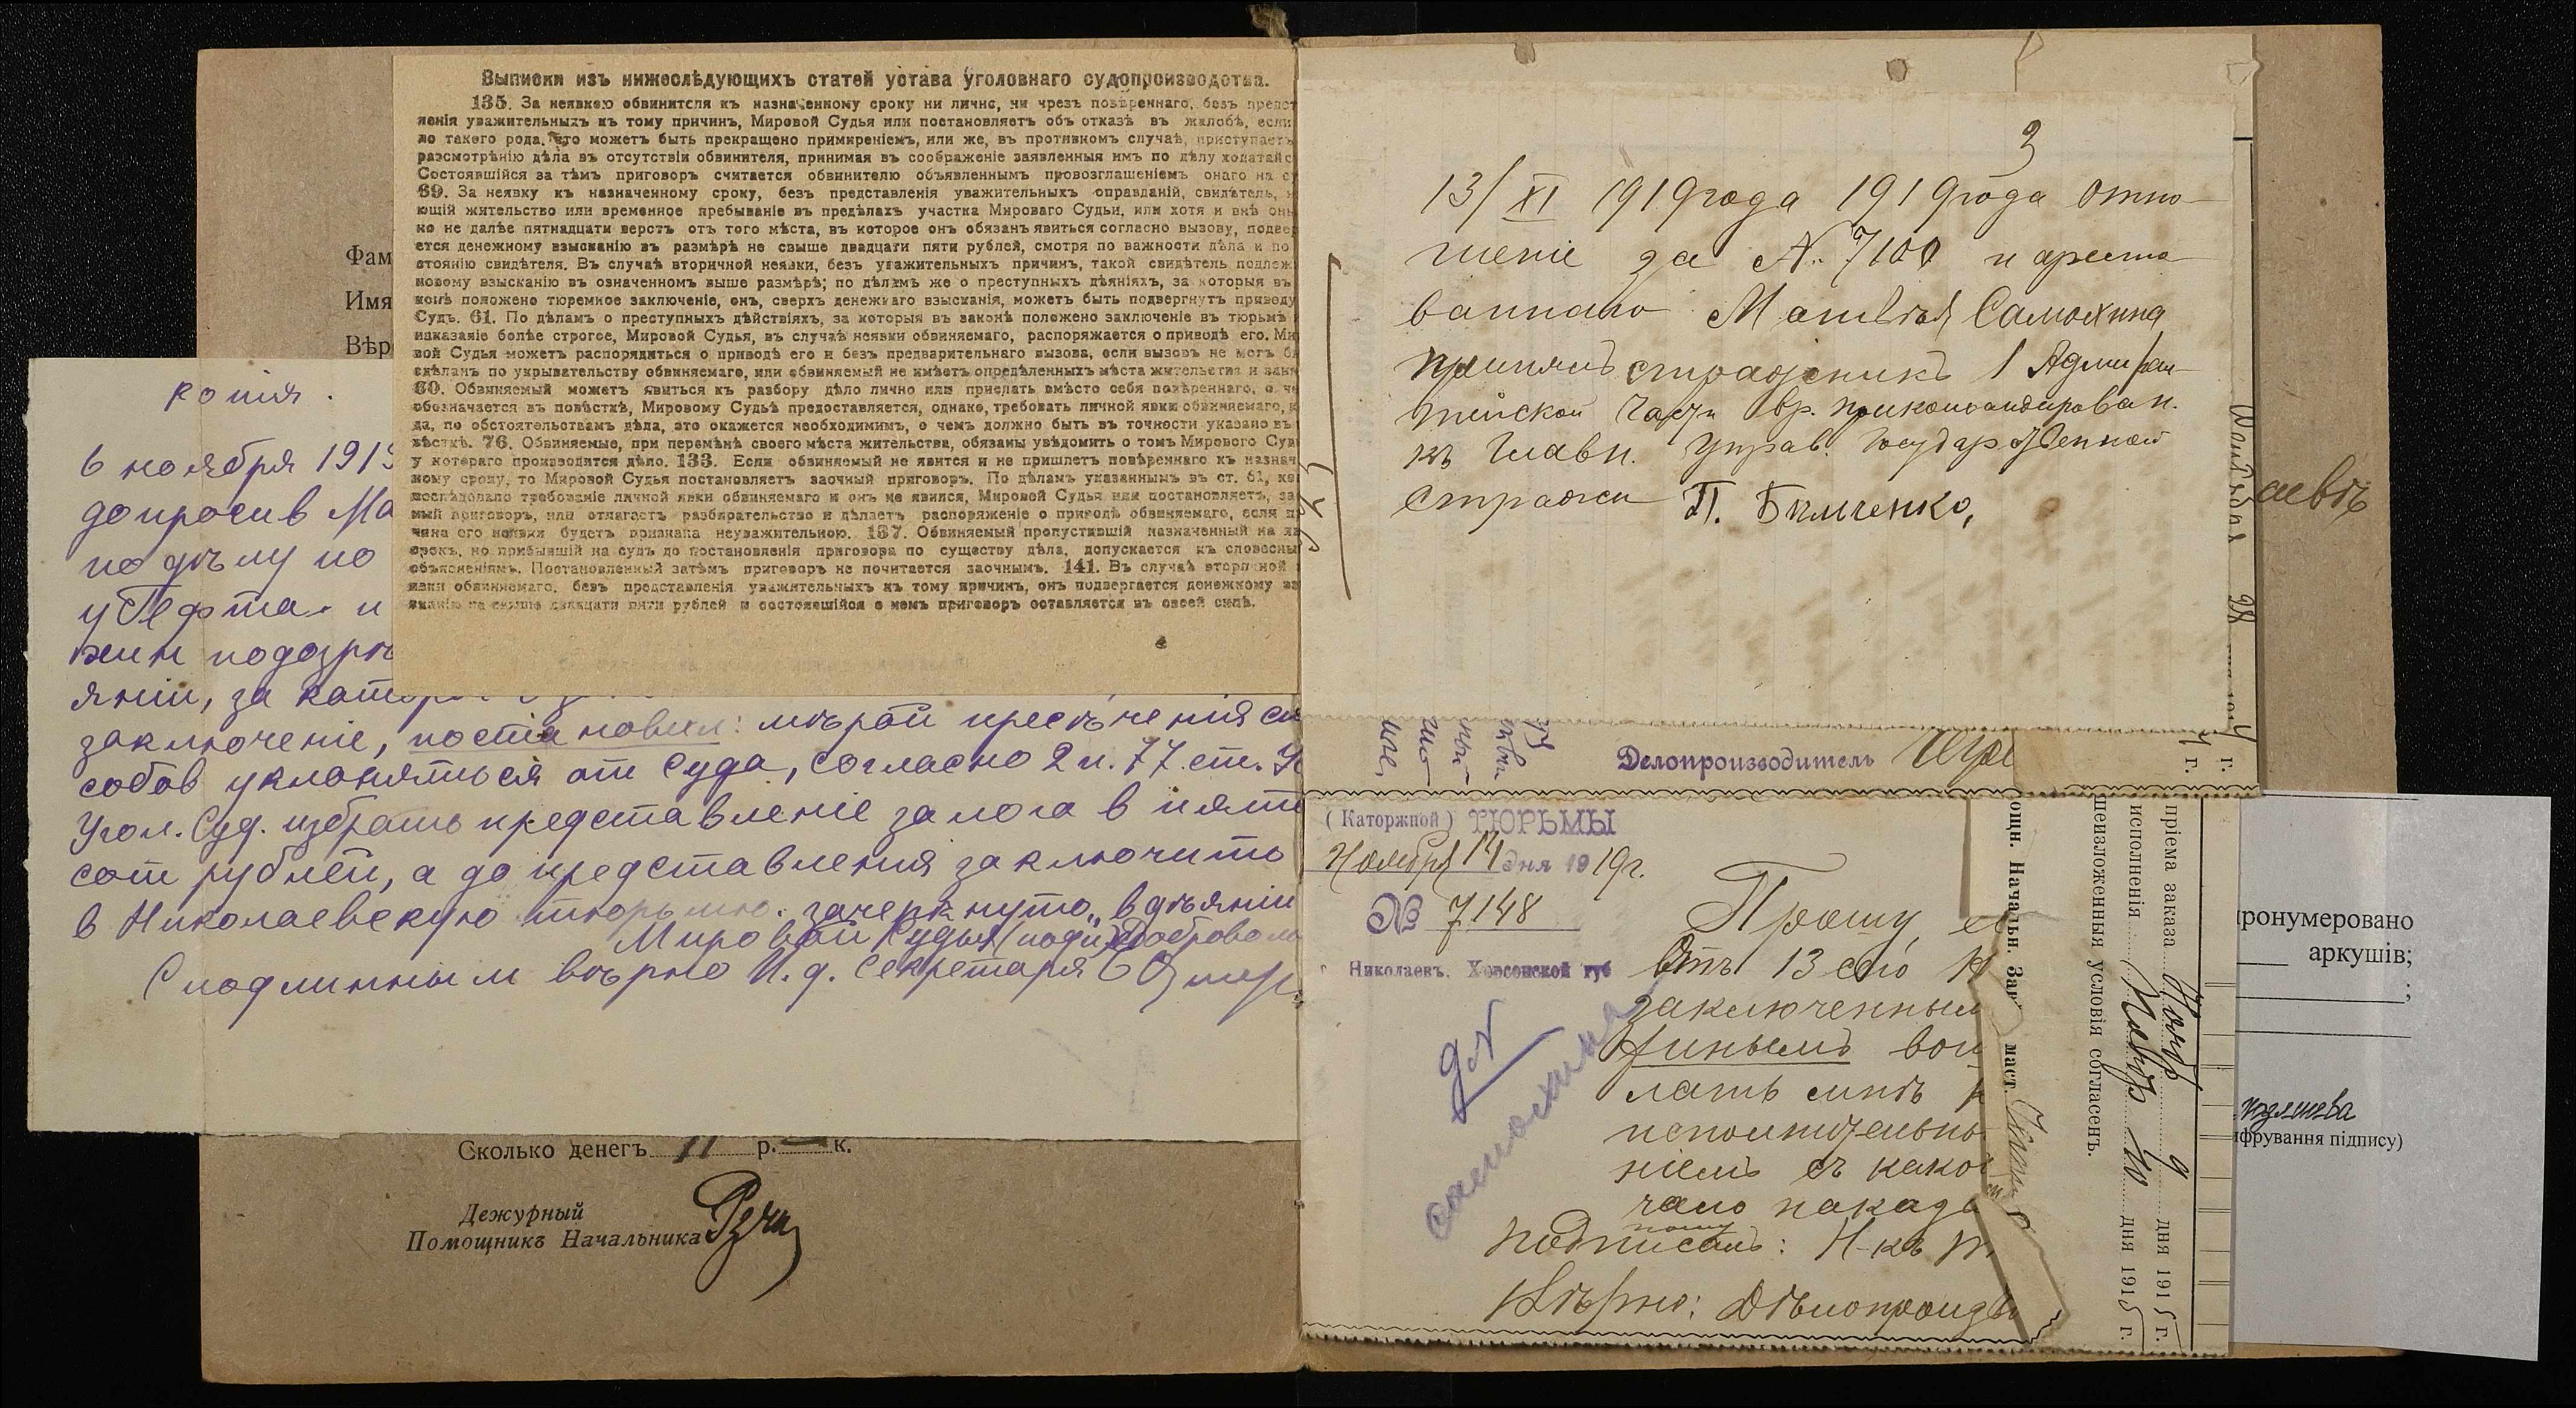 Выписки изъ нижеслѣдующихъ статей устава уголовнаго судопроизводства.
135. За неявкою обвинителя къ назначенному сроку ни лично, ни чрезъ повѣреннаго, безъ предст
явнія уважительныхъ къ тому причинъ, Мировой Судья или постановляетъ объ отказѣ въ жалобѣ, если
ло такого рода, что можетъ быть прекращено примиреніемъ, или же, въ противномъ случаѣ, приступаетъ
разсмотрѣнію дѣла въ отсутствіи обвинителя, принимая въ соображеніе заявленныя имъ по дѣлу ходатайс
Состоявшійся за тѣмъ приговоръ считается обвинителю объявленнымъ провозглашеніемъ онаго на с
69. За неявку къ назначенному сроку, безъ представленія уважительныхъ оправданій, свидѣтель,
ющій жительство или временное пребываніе въ предѣлахъ участка Мироваго Судьи, или хотя и внѣ он
но не далѣе пятнадцати верстъ отъ того мѣста, въ которое онъ обязанъ явиться согласно вызову, подве
ется денежному взысканію въ размѣрѣ не свыше двадцати пяти рублей, смотря по важности дѣла и по
стоянію свидѣтеля. Въ случаѣ вторичной неявки, безъ уважительныхъ причинъ, такой свидѣтель подлеж
новому взысканію въ означенномъ выше размѣрѣ; по дѣламъ же о преступныхъ дѣяніяхъ, за которыя въ
конѣ положено тюремное заключеніе, онъ, сверхъ денежнаго взысканія, можетъ быть подвергнутъ приводу
Судъ. 61. По дѣламъ о преступныхъ дѣйствіяхъ, за которыя въ законѣ положено заключеніе въ тюрьмѣ
наказаніе болѣе строгое, Мировой Судья, въ случаѣ неявки обвиняемаго, распоряжается о приводѣ его. Ми
вой Судья можетъ распорядиться о приводѣ его и безъ предварительнаго вызова, если вызовъ не могъ б
сдѣланъ по укрывательству обвиняемаго, или обвиняемый не имѣетъ опредѣленныхъ мѣста жительства и зан
60. Обвиняемый можетъ явиться къ разбору дѣло лично или прислать вмѣсто себя повѣреннаго, о ч
обозначается въ повѣсткѣ, Мировому Судьѣ предоставляется, однако, требовать личной явки обвиняемаго,
да, по обстоятельствам дѣла, это окажется необходимимъ, о чемъ должно быть въ точности указано въ
вѣсткѣ. 76. Обвиняемые, при перемѣнѣ своего мѣста жительства, обязаны увѣдомить о томъ Мирового Суд
у котераго производится дѣло. 133. Если обвиняемый не явится и не пришлетъ повѣреннаго къ назнач
ному сроку, то Мировой Судья постановляетъ заочный приговоръ. По дѣламъ указаннымъ въ ст. 61, ко
послѣдовало требованіе личной явки обвиняемаго и онъ не явился, Мировой Судья или постановляетъ, за
ный приговоръ, или отлагаетъ разбирательство и дѣлаетъ распоряженіе о приводѣ обвиняемаго, если п
чина его неявки будетъ признана неуважительною. 137. Обвиняемый пропустившій назначенный на яв
срокъ, но прибывшій на судъ до постановленія приговора по существу дѣла, допускается къ словесны
объясненіямъ. Постановленный затѣмъ приговоръ не почитается заочнымъ. 141. Въ случаѣ вторичной
явки обвиняемаго, безъ представленія уважительныхъ къ тому причинъ, онъ подвергается денежному вз
ысканію не свыше двадцати пяти рублей и состоявшійся о немъ приговоръ оставляется въ своей силѣ.
Фам
Имя
Вѣр
копія.
6 ноября 191
допросив Ма
по дѣлу по
убефта и
жин подозрѣ
яніи, за котор
заключеніе, постановил: мѣрой пресѣченія сп
собов уклоняться от суда, согласно 2 п. 77 ст. У
Угол. Суд. избрать представленіе залога в пять
сот рублей, а до представленія заключить
в Николаевскую тюрьму. зачеркнуто „в дѣяніи
Мировой Судья (подп) Доброволь
С подлинным вѣрно И. д. Секретаря
Сколько денегъ 11 р. — к.
Дежурный
Помощникъ Начальника
3
13/XI 1919 года 1919 года отно-
шеніе за № 7100 и аресто
ваннаго Матвѣя Самохина
принялъ стражникъ 1 Адмирал-
тейской части вр. прикомандирован.
къ Главн. Управ. Государственной
Стражи П. Бильченко,
аевѣ
Делопроизводитель
(Каторжной) ТЮРЬМЫ
Ноября 14 дня 1919г.
№ 7148
Николаевъ, Херсонской губ
Самохина
Прошу
Отъ 13 сего Н
заключенным
хинымъ вои
лать мнѣ
исполнительны
ніемъ съ како
чало наказа
Подписалъ: Н-къ
Вѣрно: Дѣлопроизв
ощн. Начальн. Зав маст.
шеизложенныя условія согласенъ.
исполненія Ноябр 10 дня 1915 г.
пріема заказа Ноябр 9 дня 1915 г.
Ноября 28
г.
г.
пронумеровано
аркушів;
;
ифрування підпису)